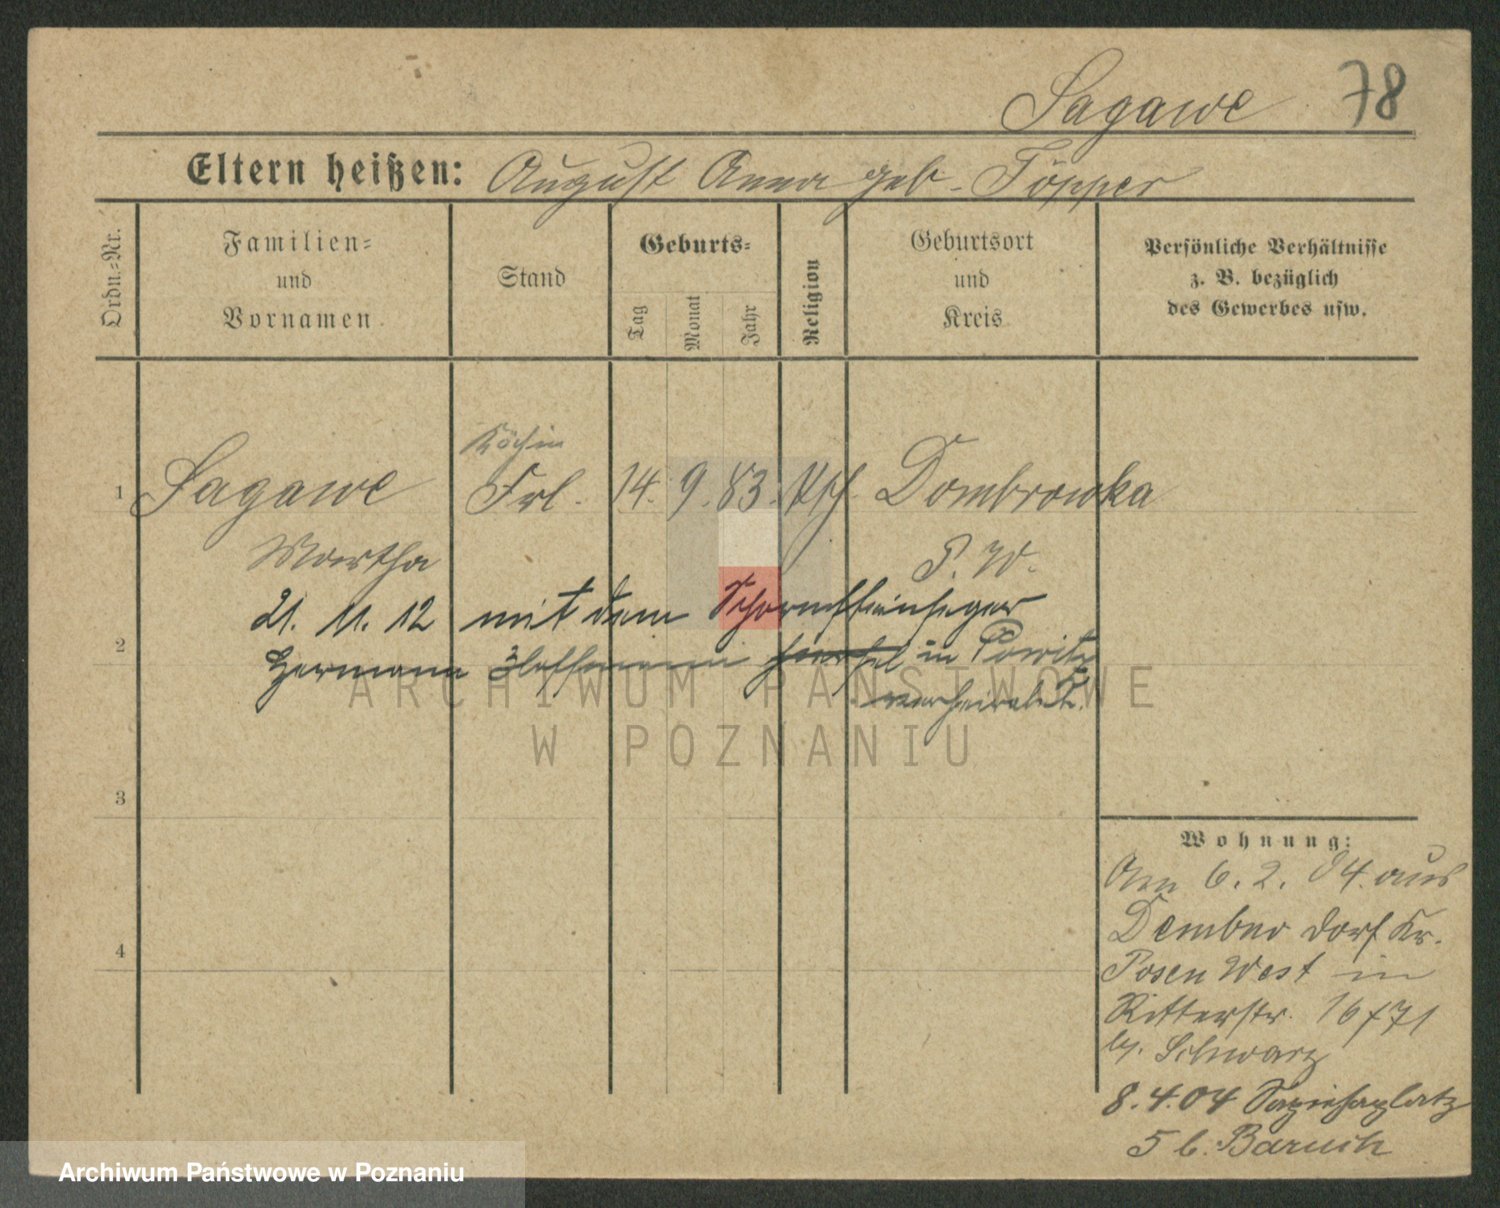 Sagawe 78
Eltern heißen: August Anna geb. Töpper
Ordn.=Nr.
Familien=
und
Vornamen
Stand
Geburts=
Tag
Monat
Jahr
Religion
Geburtsort
und
Kreis
Persönliche Verhältnisse
z. B. bezüglich
des Gewerbes usw.
Köchin
1 Sagawe Frl. 14. 9. 83. kth. Dombrowka
Martha P. W.
21. 11. 12 mit dem Schornsteinfeger
2
Hermann Hoffmann in Powitz
verheiratet.
3
4
Wohnung:
Am 6. 2. 04. aus
Dembno dorf Kr.
Posen West in
Ritterstr. 16/71
by. Schwarz
8.4.04 Sapiehaplatz
5 b. Baruch
ARCHIWUM PAŃSTWOWE
W POZNANIU
Archiwum Państwowe w Poznaniu